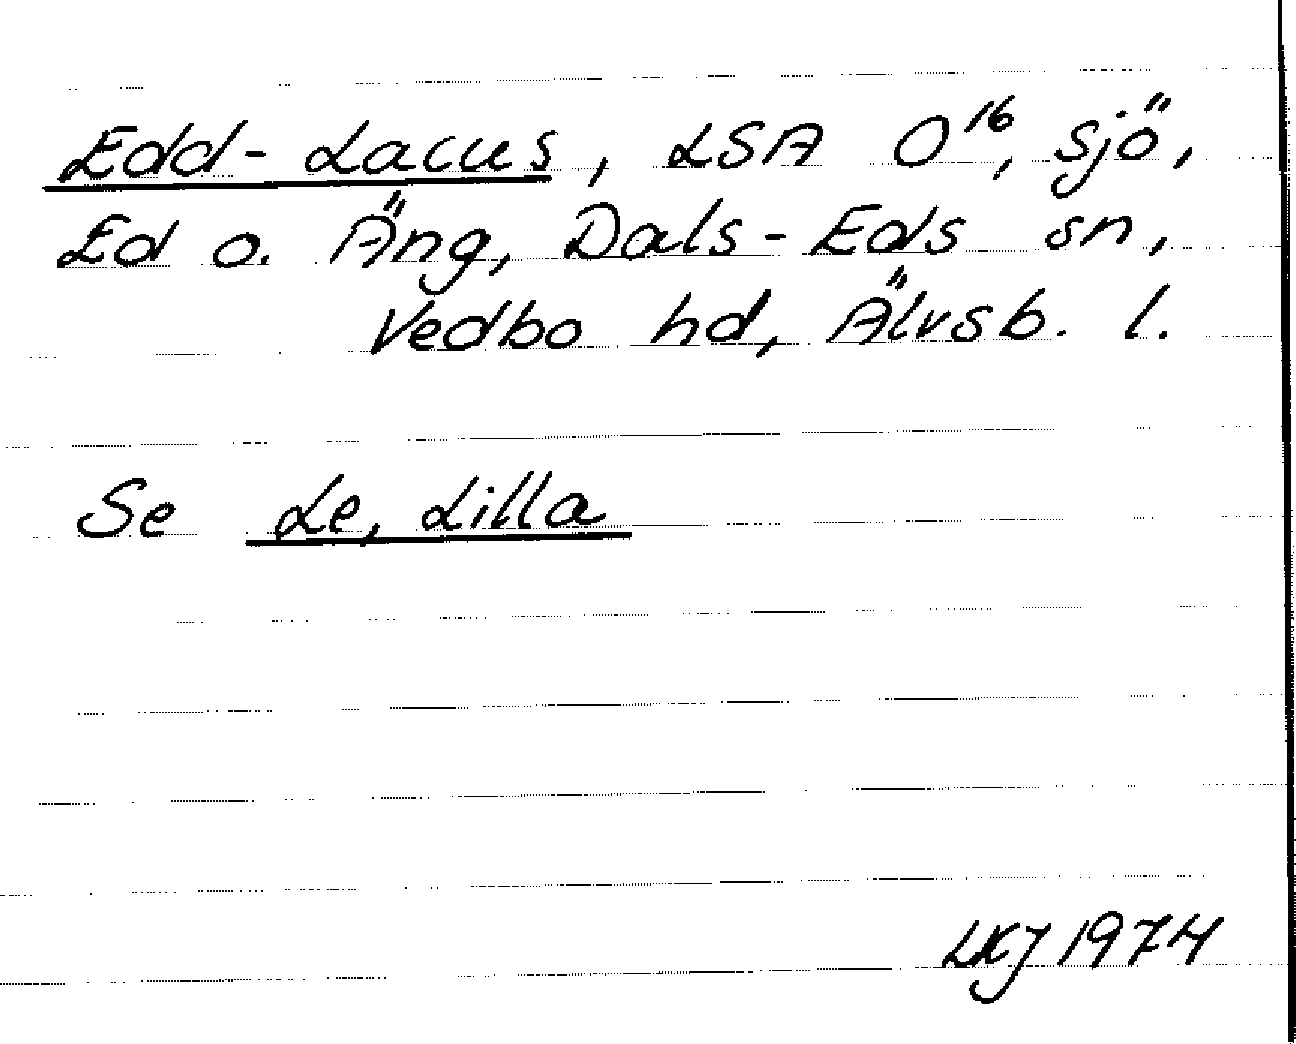 Edd-Lacus, LSA O¹⁶, sjö,
Ed o. Äng, Dals-Eds sn,
Vedbo hd, Älvsb. l.
Se Le, Lilla
LKJ 1974